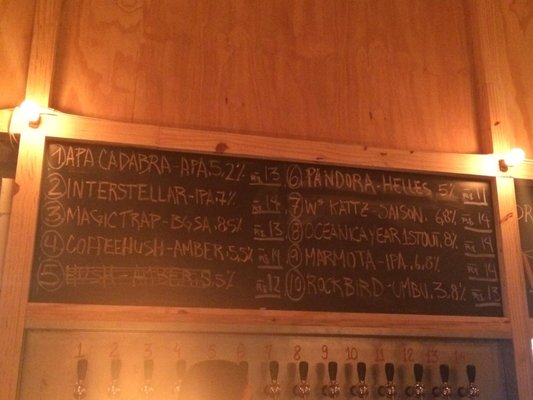 ① DAPA CADABRA-APA, 5,2% R$ 13
② INTERSTELLAR-IPA, 7% R$ 14
③ MAGIC TRAP-BGSA, 8,5% R$ 13
④ COFFEEHUSH-AMBER, 5,5% R$ 14
⑤ HUSH-AMBER, 5,5% R$ 12
⑥ PANDORA-HELLES, 5% R$ 11
⑦ Wˢ KATZ-SAISON, 6,8% R$ 14
⑧ OCEANICA YEAR 1 STOUT, 8% R$ 14
⑨ MARMOTA-IPA, 6,8% R$ 14
⑩ ROCKBIRD-UMBU, 3,8% R$ 13
1 2 3 4 5 6 7 8 9 10 11 12 13 14